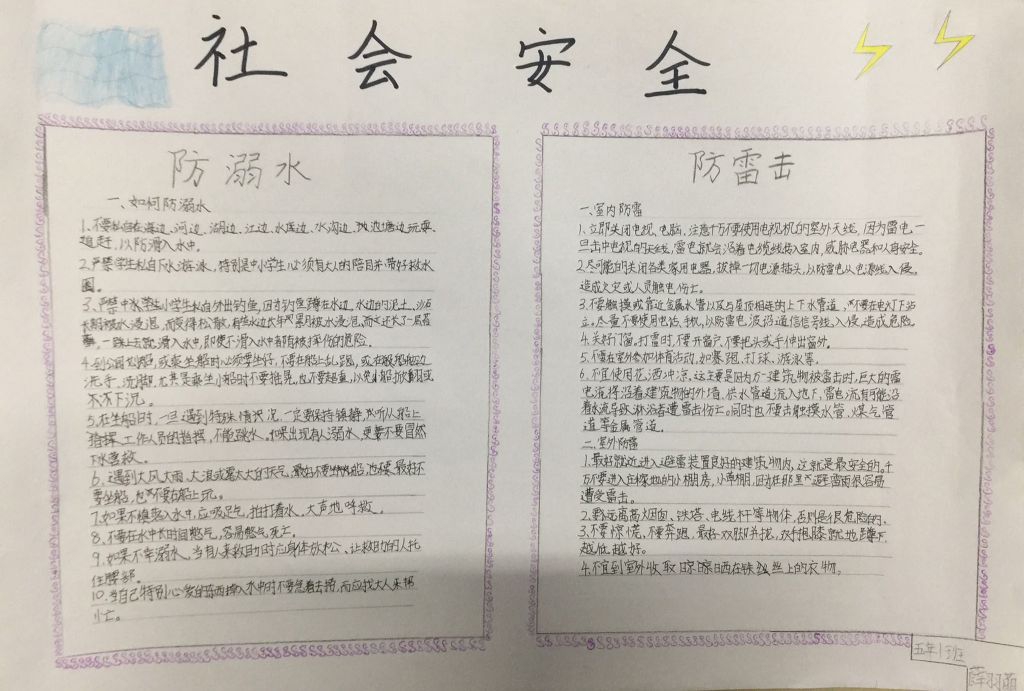 社会安全
防溺水
一、如何防溺水
1、不要私自在海边、河边、湖边、江边、水库边、水沟边、池塘边玩耍、
追赶,以防滑入水中。
2.严禁学生私自下水游泳,特别是中小学生必须有大人的陪同并带好救水
圈。
3、严禁中小学生私自外出钓鱼,因为钓鱼蹲在水边,水边的泥土、沙石
长期被水浸泡,而变得松散,有些水边长年累月被水浸泡,而还长了一层苔
藓,一踩上去就滑入水中,即使不滑入水中都有被摔伤的危险。
4.到公园划船,或乘坐船时必须要坐好,不要在船上乱跑,或在船舷边
洗手、洗脚,尤其是乘坐小船时不要摇晃,也不要超重,以免小船掀翻或
下沉。
5.在坐船时,一旦遇到特殊情况,一定要保持镇静,听从船上
指挥、工作人员的指挥,不能跳水。如果出现有人溺水,更要不要冒然
下水急救。
6.遇到大风大雨、大浪或雾太大的天气,最好不要坐船,最好不
要坐船,也不要在船上玩。
7.如果不慎落入水中,应吸足气,拍打着水,大声地呼救。
8.不要在水中长时间憋气,容易憋气死亡。
9.如果不幸溺水,当有人来救助时应身体放松、让救助的人托
住腰部。
10.当自己特别心爱的东西掉入水中时不要急着去捞,而应找大人来帮
忙。
防雷击
一、室内防雷
1、立即关闭电视、电脑,注意千万不要使用电视机的室外天线,因为雷电一
旦击中电视的天线,雷电就会沿着电缆线传入室内,威胁电器和人身安全。
2.尽可能的关闭各类家用电器,拔掉一切电源插头,以防雷电从电源线入侵,
造成火灾或人员触电伤亡。
3.不要触摸或靠近金属水管以及与屋顶相连的上下水管道,不要在电灯下站
立。尽量不要使用电话、手机,以防雷电波沿通信信号线入侵,造成危险。
4.关好门窗,打雷时,不要开窗户,不要把头或手伸出窗外。
5.不要在室外参加体育活动,如赛跑、打球、游泳等。
6.不宜使用花洒冲凉,这主要是因为万一建筑物被雷击时,巨大的雷
电流将沿着建筑物的外墙、供水管道流入地下,雷电流有可能沿
着水流导致淋浴者遭雷击伤亡。同时也不要去触摸水管、煤气管
道等金属管道。
二.室外防雷
1.最好就近进入避雷装置良好的建筑物内,这就是最安全的。千
万不要进入庄稼地的小棚房,小草棚,因为在那里避雷雨很容易
遭受雷击。
2.要远离高大烟囱、铁塔、电线杆等物体,否则是很危险的。
3.不要惊慌,不要奔跑,最好双脚并拢,双手抱膝就地蹲下,
越低越好。
4.不宜到室外收取晾晒在铁丝上的衣物。
五年1班
薛羽菡